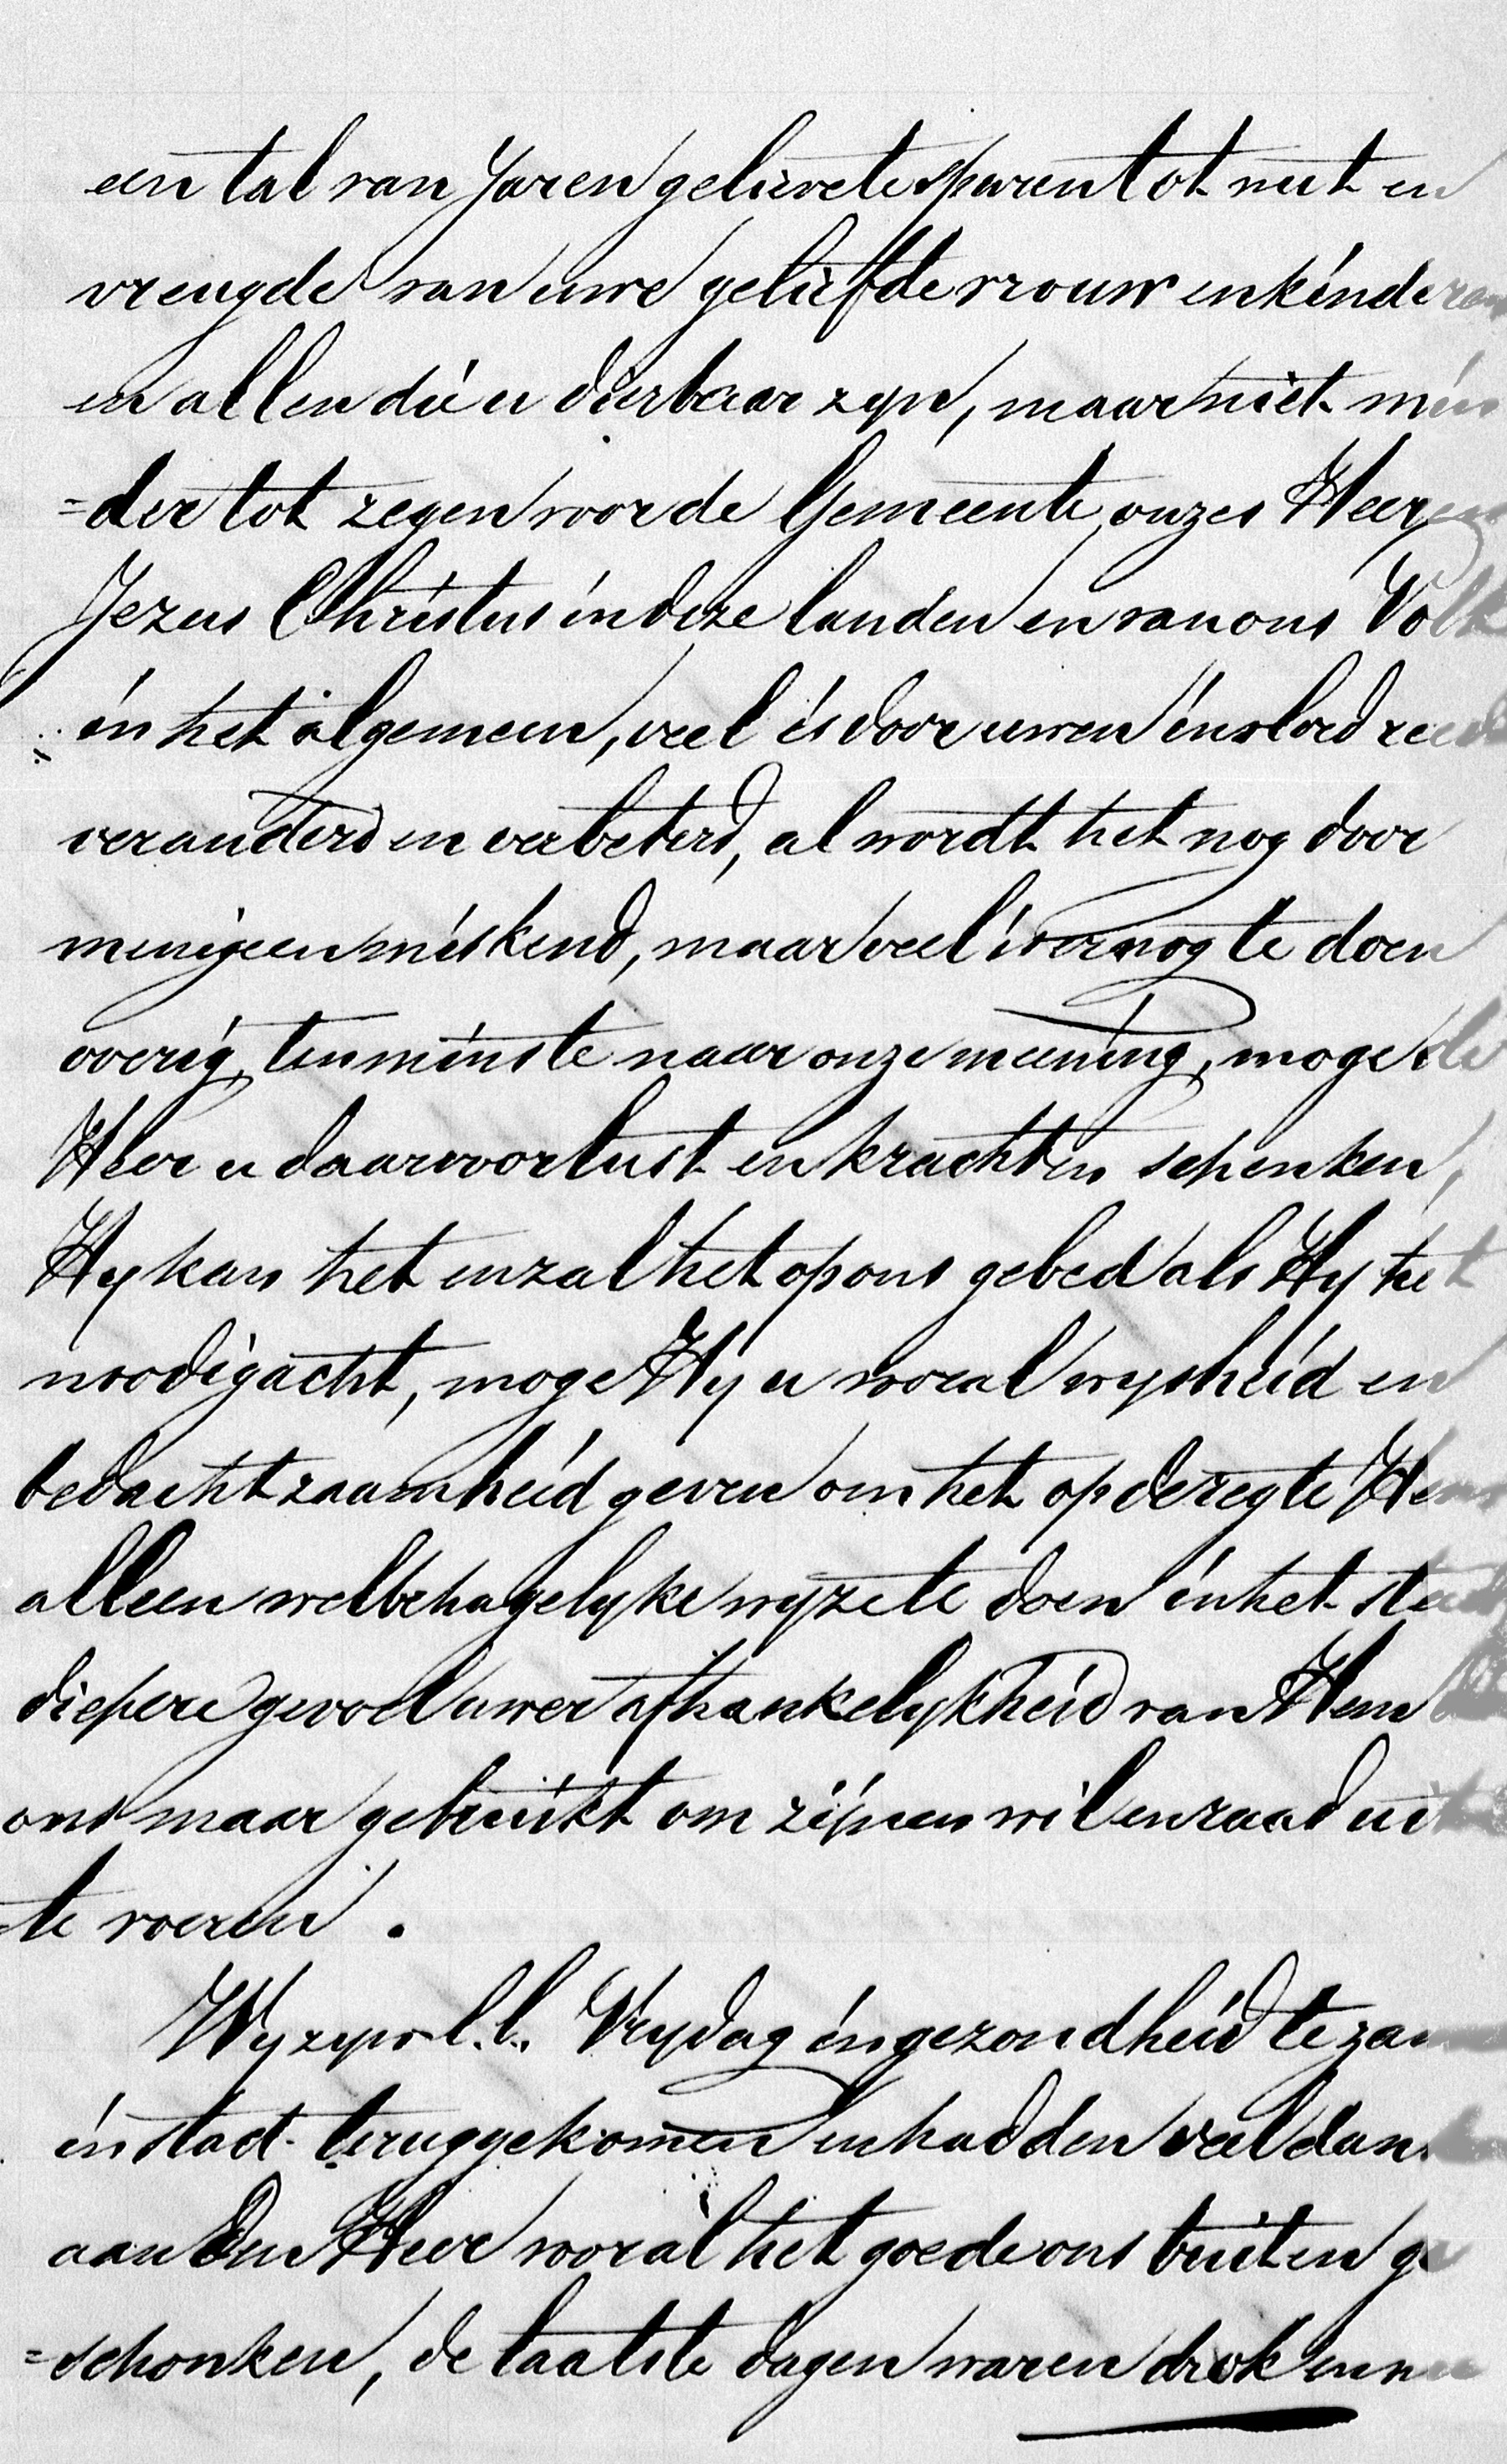 een tal van Jaren gelieve te sparen tot nut en
vreugde van uwe geliefde vrouw en kinderen
en allen die u dierbaar zyn, maar niet min
=der tot zegen voor de Gemeente onzes Heeren
Jezus Christus in deze landen en van ons Volk
in het algemeen, veel is door uwen invloed reeds
veranderd en verbeterd, al wordt het nog door
menigeen miskend, maar veel is er nog te doen
overig, tenminste naar onze meening, moge de
Heer u daarvoor lust en krachten schenken,
Hy kan het en zal het op ons gebed als Hy het
noodig acht, moge Hy u vooral wysheid en
bedachtzaamheid geven om het op de regte Hem
alleen welbehagelyke wyze te doen in het steeds
diepere gevoel uwer afhankelykheid van Hem
ons maar gebruikt om zijnen wil en raad uit
te voeren.
Wy zyn l.l. Vrydag in gezondheid te zam
in stad teruggekomen en hadden veel dank
aan den Heer voor al het goede ons buiten ge
=schonken, de laatste dagen waren drok en